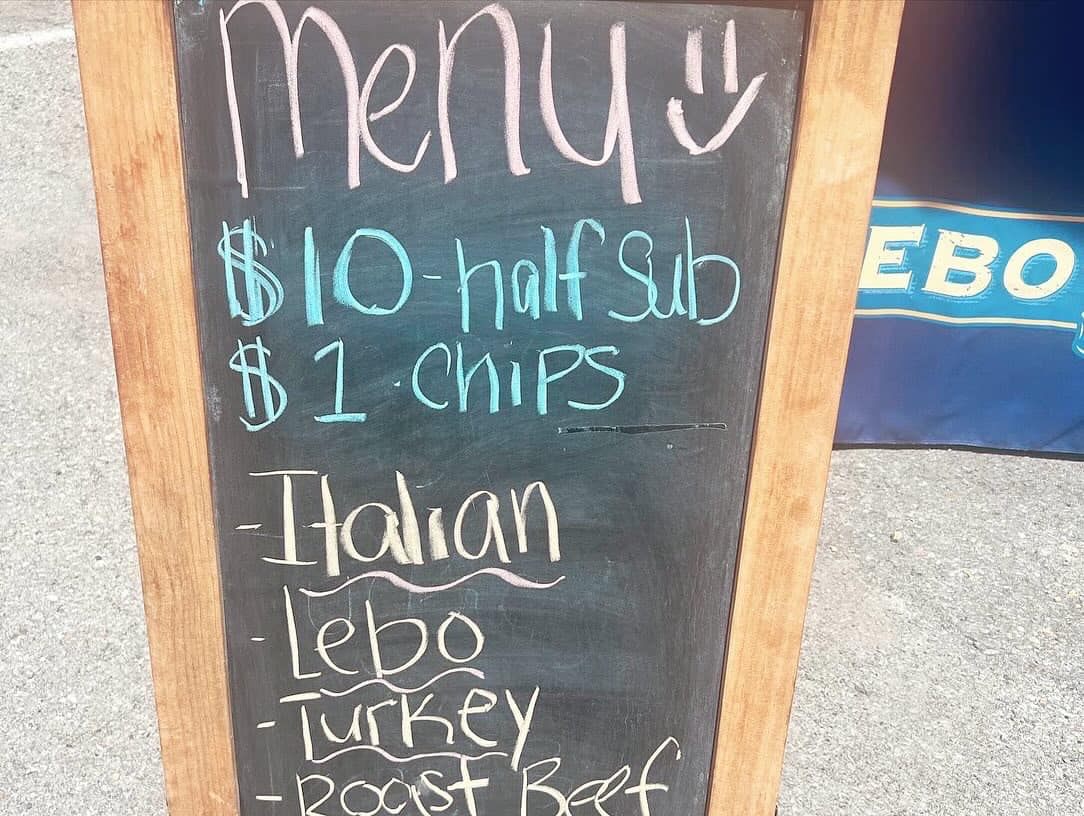 Menu
$10-half Sub
$1 Chips
- Italian
- Lebo
- Turkey
- Roast Beef
EBO